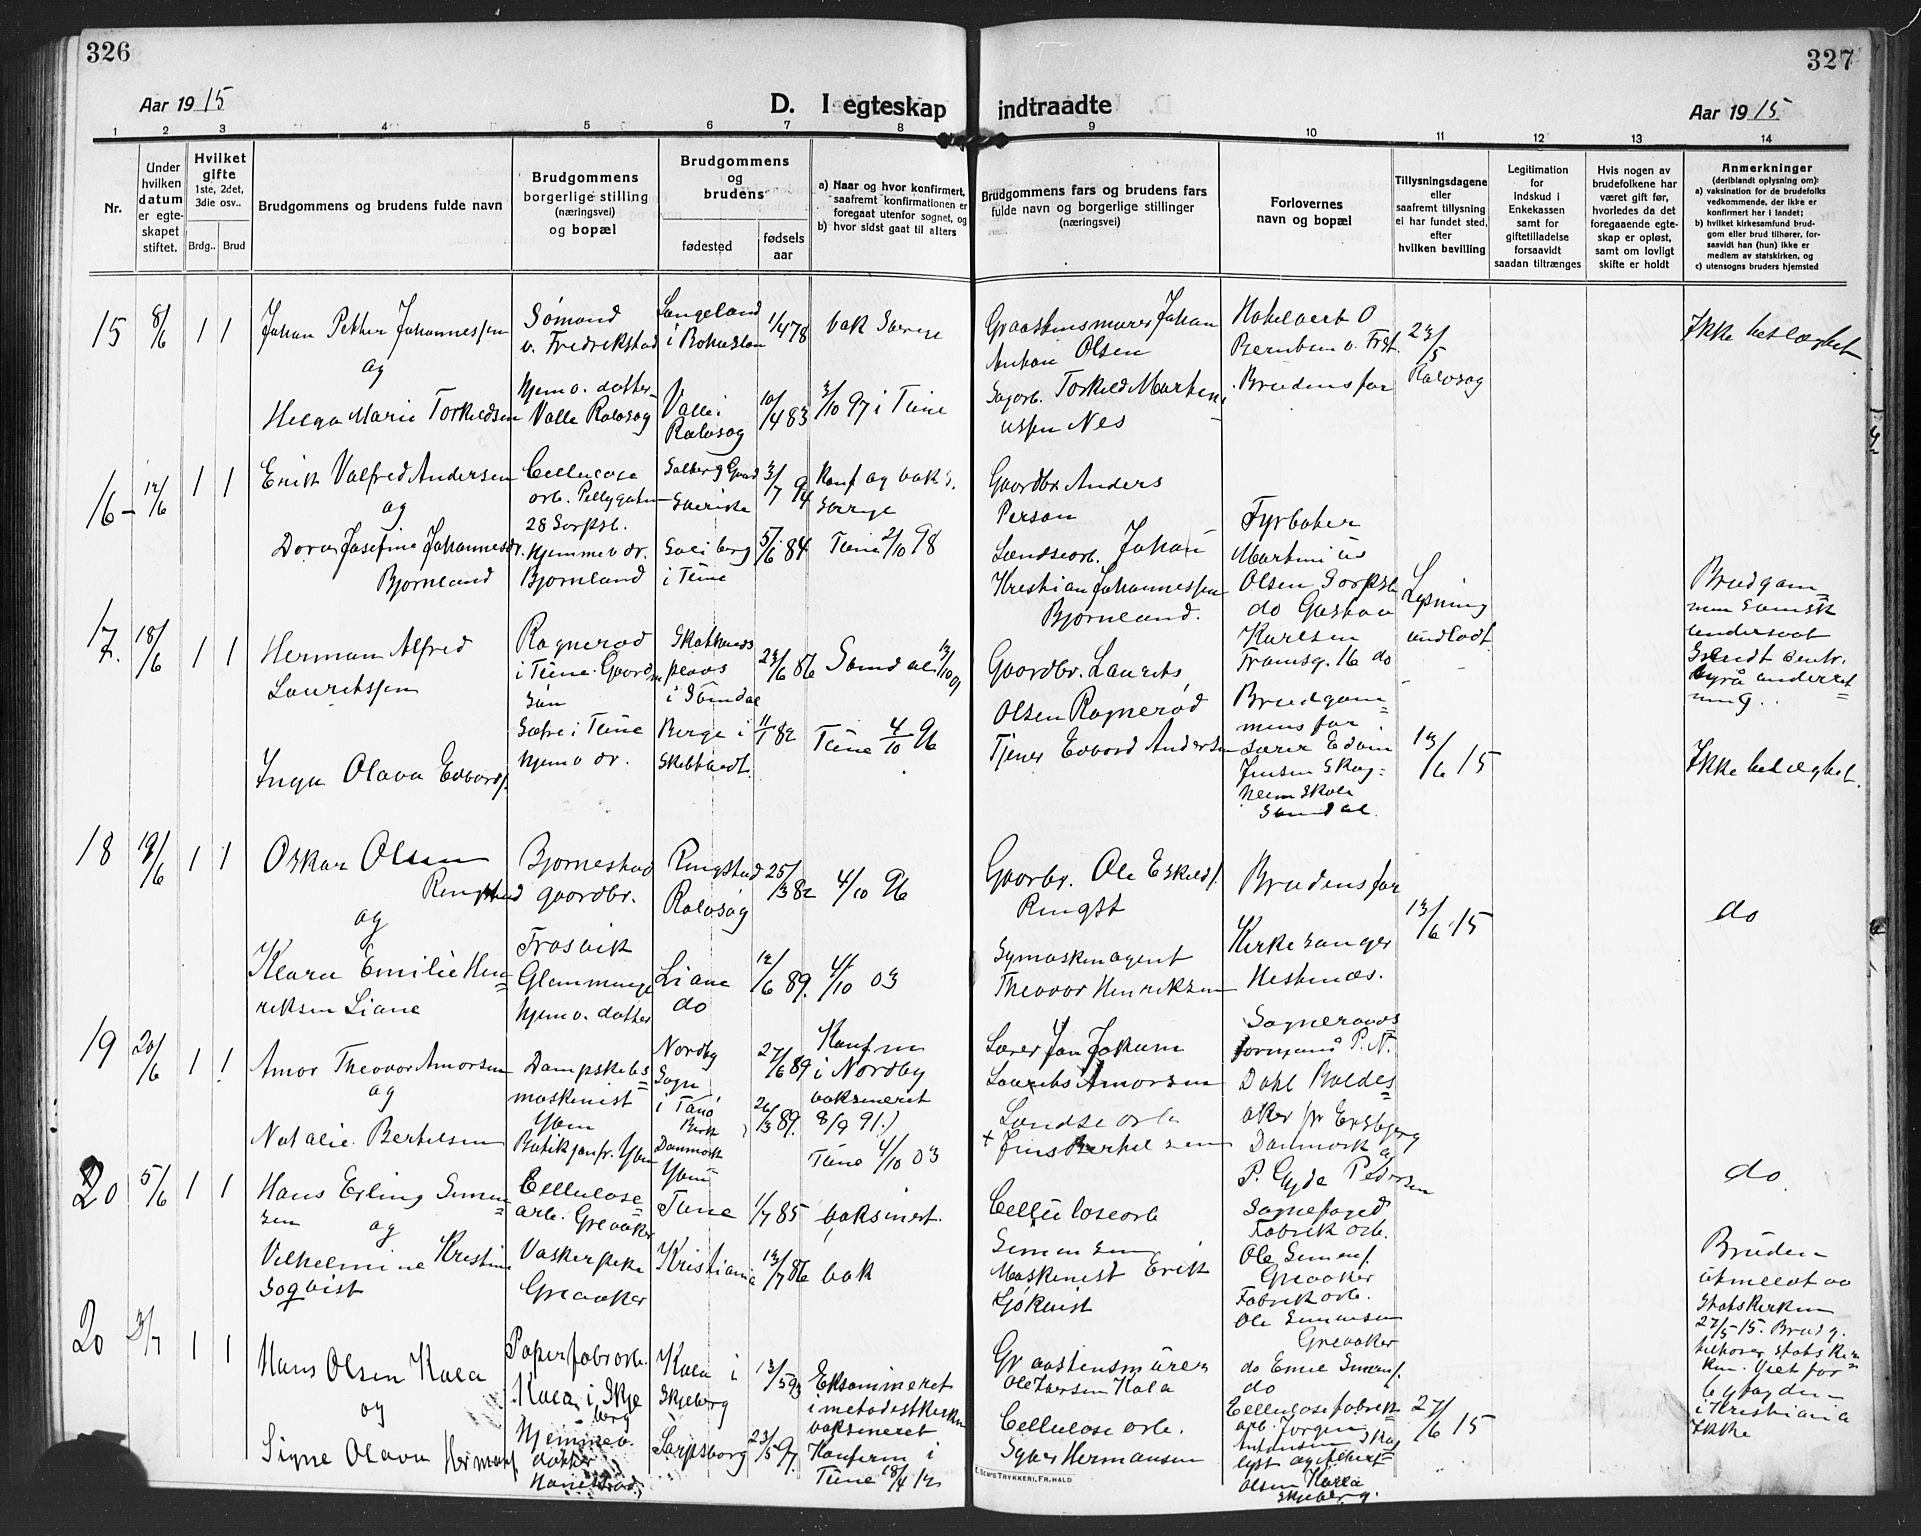 326
327
Aar 1915
D. I egteskap indtraadte
Aar 1915
1 2 3 4 5 6 7 8 9 10 11 12 13 14
Nr.
Under hvilken datum er egteskapet stiftet.
Hvilket gifte 1ste, 2det, 3die osv..
Brdg.. Brud
Brudgommens og brudens fulde navn
Brudgommens borgerlige stilling (næringsvei) og bopæl
Brudgommens og brudens
fødested
fødsels aar
a) Naar og hvor konfirmert, saafremt konfirmationen er foregaat utenfor sognet, og
b) hvor sidst gaat til alters
Brudgommens fars og brudens fars fulde navn og borgerlige stillinger (næringsvei)
Forlovernes navn og bopæl
Tillysningsdagene eller saafremt tillysning ei har fundet sted, efter hvilken bevilling
Legitimation for indskud i Enkekassen samt for giftetilladelse forsaavidt saadan tiltrænges
Hvis nogen av brudefolkene har været gift før, hvorledes da det foregaaende egteskap er opløst, samt om lovligt skifte er holdt
Anmerkninger (deriblandt oplysning om):
a) vaksination for de brudefolks vedkommende, der ikke er konfirmert her i landet;
b) hvilket kirkesamfund brudgom eller brud tilhører, forsaavidt han (hun) ikke er medlem av statskirken, og
c) utensogns bruders hjemsted
15 8/6 1 1
Johan Petter Johannessen
og
Helga Marie Torkildsen
Sømand
v. Fredrikstad
Hjemv. datter
Valle Rolvsøg
Langeland
i Bohuslan
Valle i
Rolvsøg
1/4 78
10/4 83
vak Sverige
3/10 97 i Tune
Graastensmurer Johan
Anton Olsen
Torkild Martin
ussen Nes
Brudens far
23/5
Rolvsøg
Ikke beslægtet
16 - 12/6 1 1
Erik Valfred Andersen
og
Dorus Josefine Johannesdr.
Bjørnland
Cellulose
arb. Pellygaten
28 Sarpsb.
Hjemmev. dr.
Bjørnland
Sverige
Solberg
i Tune
3/7 94
5/6 84
Konf og vak i
Sverige
Tune 2/10 98
Gaardbr. Anders
Person
Landsarb. Johan
Kristian Johannessen
Bjørnland.
Fyrbøter
Martinius
Olsen Sarpsb
do Gustav
Karlsen
Framsg. 16 do
Lysning
undladt
Brudgom
men svensk
undersaat
Sendt centr.
byrå underret
ning.
17. 18/6 1 1
Herman Alfred
Lauritssen
Inga Olava Edvards.
Ragnerød
i Tune Gaardm
Søn
i Tune
Hjemv dr.
plads
i Somdal
Berge i
Skebtvedt.
23/6 86
11/1 82
Tune 4/10 96
Gaardbr. Laurits
Olsen Ragnerød
Tjener Edvard Andersen
Brudgom
mens far
Lærer Edvin
Jensen Skog
heim Skole
Somdal.
13/6 15
Ikke beslægtet.
18 19/6 1 1
Oskar Olsen
Ringstad
og
Klara Emilie Hen
riksen Liane
Bjørnestad
gaardbr.
Trosvik
Glemminge
hjemv. datter
Ringstad
Rolvsøg
Liane
do
25/3 82
12/6 89.
4/10 96
4/10 03
Gaarbr. Ole Eskilds.
Ringst
Symaskinagent
Theodor Henriksen
Brudens far
Kirkesanger
Hestenæs.
13/6 15
do
19 20/6 1 1
Amor Theodor Amorsen
og
Natalie Bertelsen
Dampskibs
maskinist
Nordby
Sogn
i Fanø
Birk
Danmark
27/6 89
26/3 89.
Konfm
i Nordby
vaksineret
8/9 91.)
Tune 4/10 03
Lærer Jan Jokum
Laurits Amorsen
Landse arb
+ Jens Bertelsen
Sogneraads
formand P. N.
Dahl Baldes
aker pr Esbjerg
Danmark og
P. Gyde Pedersen
Sognefoged
do
20 5/6 1 1
Hans Erling Simen
sen og
Vilhelmine Kristine
Soqvist
Cellulose
arb. Greaaker
Vaskerpike
Greaaker
Tune
Kristiania
1/7 85
13/7 86
vaksinert.
vak
Celluloseorb
Simensen
Maskinist Erik
Sjøkvist
Fabrik arb.
Ole Simens.
Greaaker
Fabrik arb.
Ole Simensen
Greaaker
Bruden
utmeldt av
Statskirken
27/5-15. Brudg.
tilhører Statskir
ken. Viet for
byfogden
i Kristiania
20 3/7 1 1
Hans Olsen Kala
og
Signe Olava Hermans.
Papirfabrarb.
Kala i Skje
berg
Hjemmev.
datter
Kala i
Skjeberg
Sarpsborg
13/5 93
23/5 97.
Eksamineret
i metodistkirken
vaksineret
Konfirm i
Tune 18/4 12
Graastensmurer
Ole Larsen Kala
Cellulose arb.
Syver Hermansen
do Emil Simens.
do
Cellulosefabrik
arb. Jørgen
Antonsen
Olsen Kala
Skjeberg.
27/6 15
Ikke
E. SEM'S TRYKKERI, FR.HALD